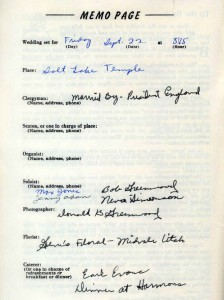 MEMO PAGE
Wedding set for Friday Sept. 22 at 545
(Day) (Date) (Hour)
Place: Salt Lake Temple
Clergyman: Married By - President England
(Name, address, phone)
Sexton, or one in charge of place:
(Name, address, phone)
Organist:
(Name, address, phone)
Soloist: Bob Greenwood
(Name, address, phone)
Max Jones
Photographer:
Donald G. Greenwood
Florist:
Floral - Midvale Utah
Caterer:
(Or one in charge of
refreshments, dinner
or breakfast)
Earl Evans
Dinner at Harmons